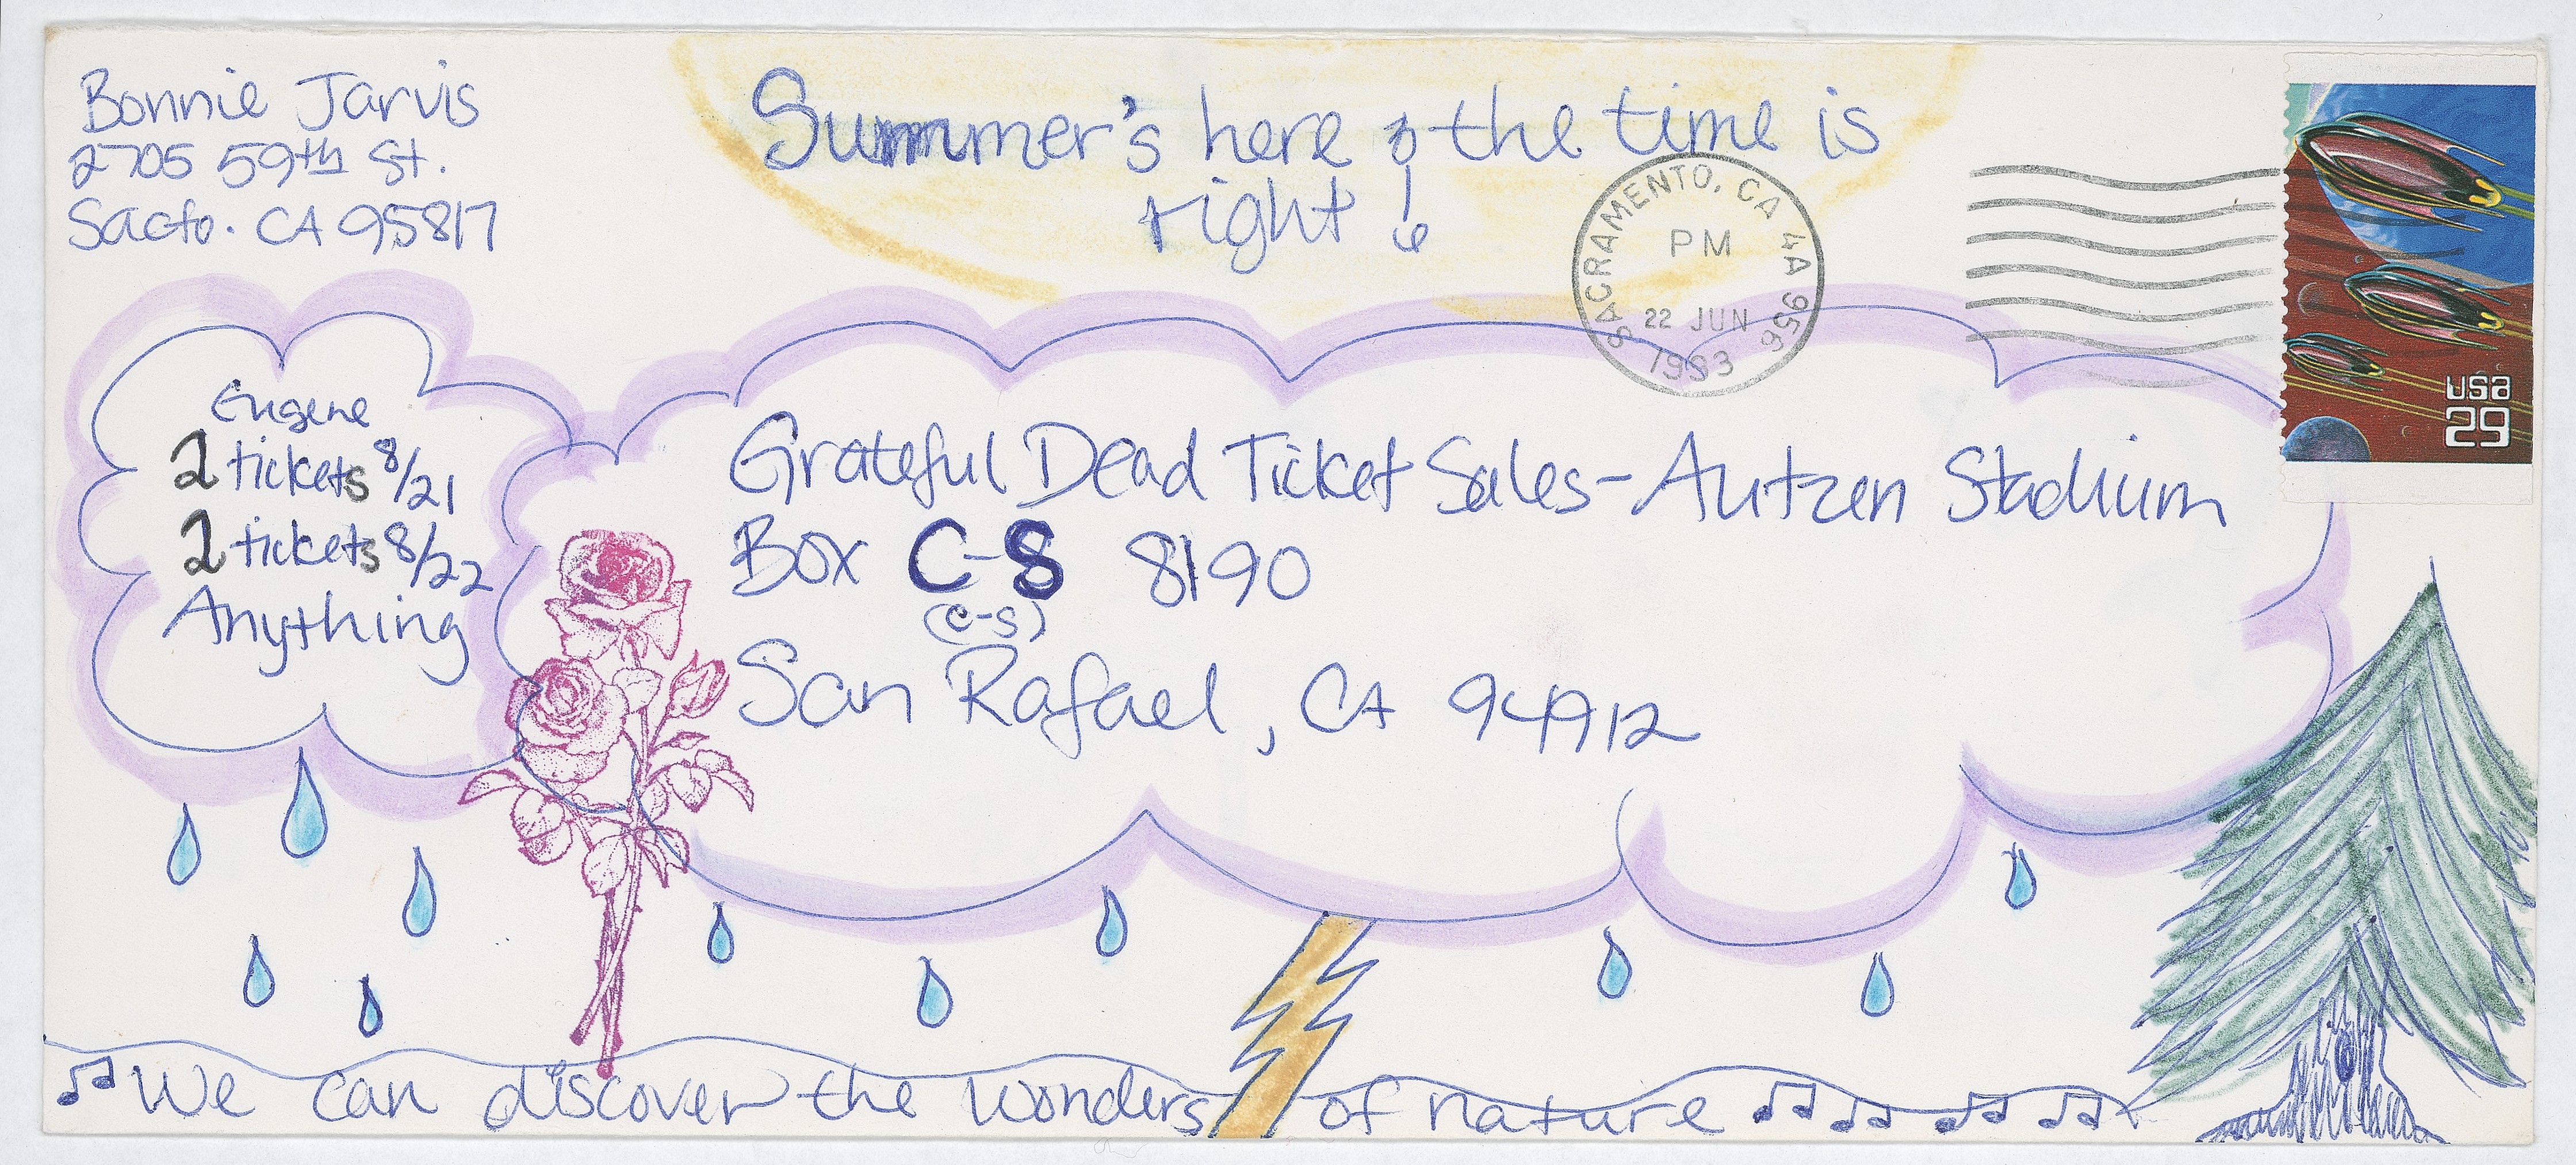 Bonnie Jarvis
2705 59th St.
Sacto. CA 95817
Summer's here & the time is
right!
SACRAMENTO, CA 956
PM
22 JUN
1993
usa
29
Eugene
2 tickets 8/21
2 tickets 8/22
Anything
Grateful Dead Ticket Sales - Autzen Stadium
Box C-S 8190
(C-S)
San Rafael, CA 94912
♫ We can discover the wonders of nature ♫ ♫ ♫ ♫